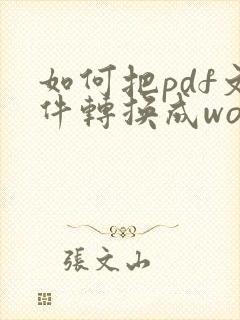 如何把pdf文
件轉換成wo
張文山